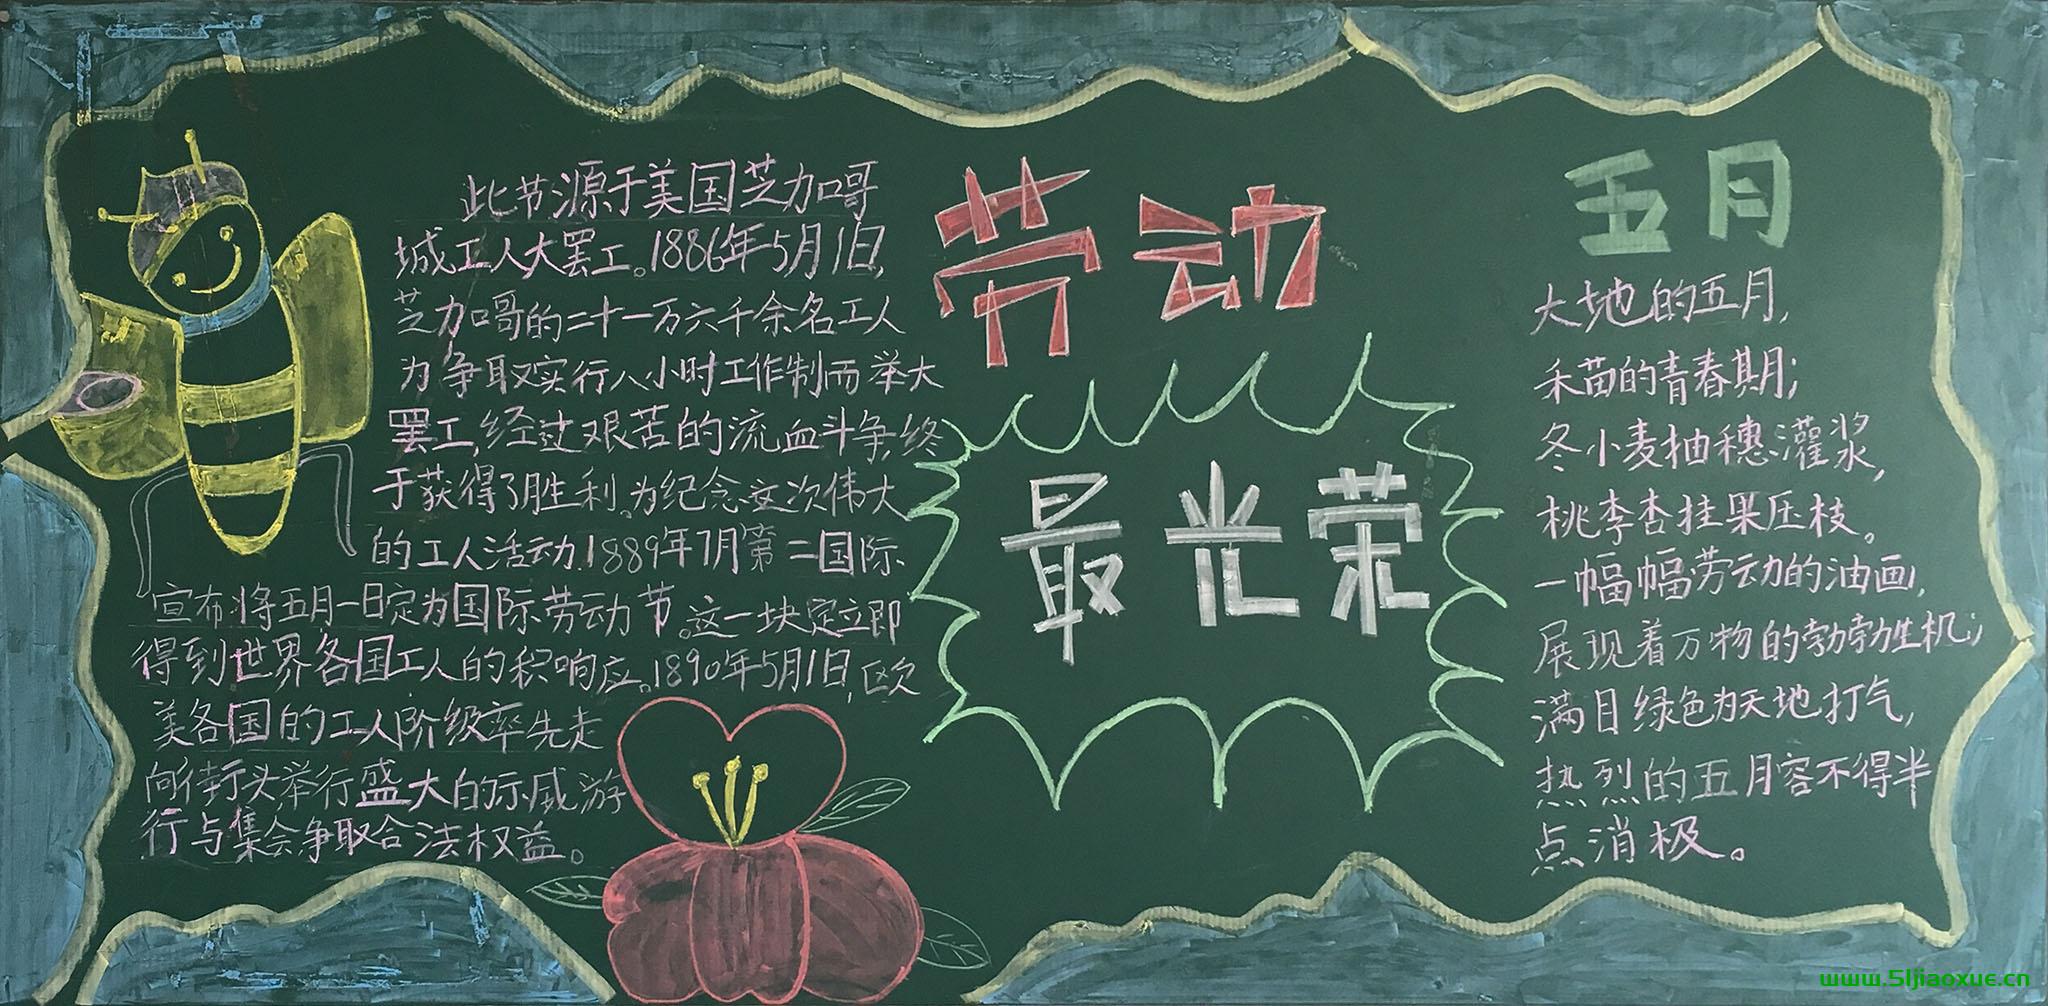 此节源于美国芝力哥
城工人大罢工。1886年5月1日,
芝力哥的二十一万六千余名工人
为争取实行八小时工作制而举大
罢工,经过艰苦的流血斗争,终
于获得了胜利。为纪念这次伟大
的工人活动.1889年7月第二国际
宣布将五月一日定为国际劳动节。这一块定立即
得到世界各国工人的积响应。1890年5月1日,欧
美各国的工人阶级率先走
向街头举行盛大的示威游
行与集会争取合法权益。
劳动
最光荣
五月
大地的五月,
禾苗的青春期;
冬小麦抽穗灌浆,
桃李杏挂果压枝。
一幅幅劳动的油画,
展现着万物的勃勃生机;
满目绿色为天地打气,
热烈的五月容不得半
点消极。
www.51jiaoxue.cn